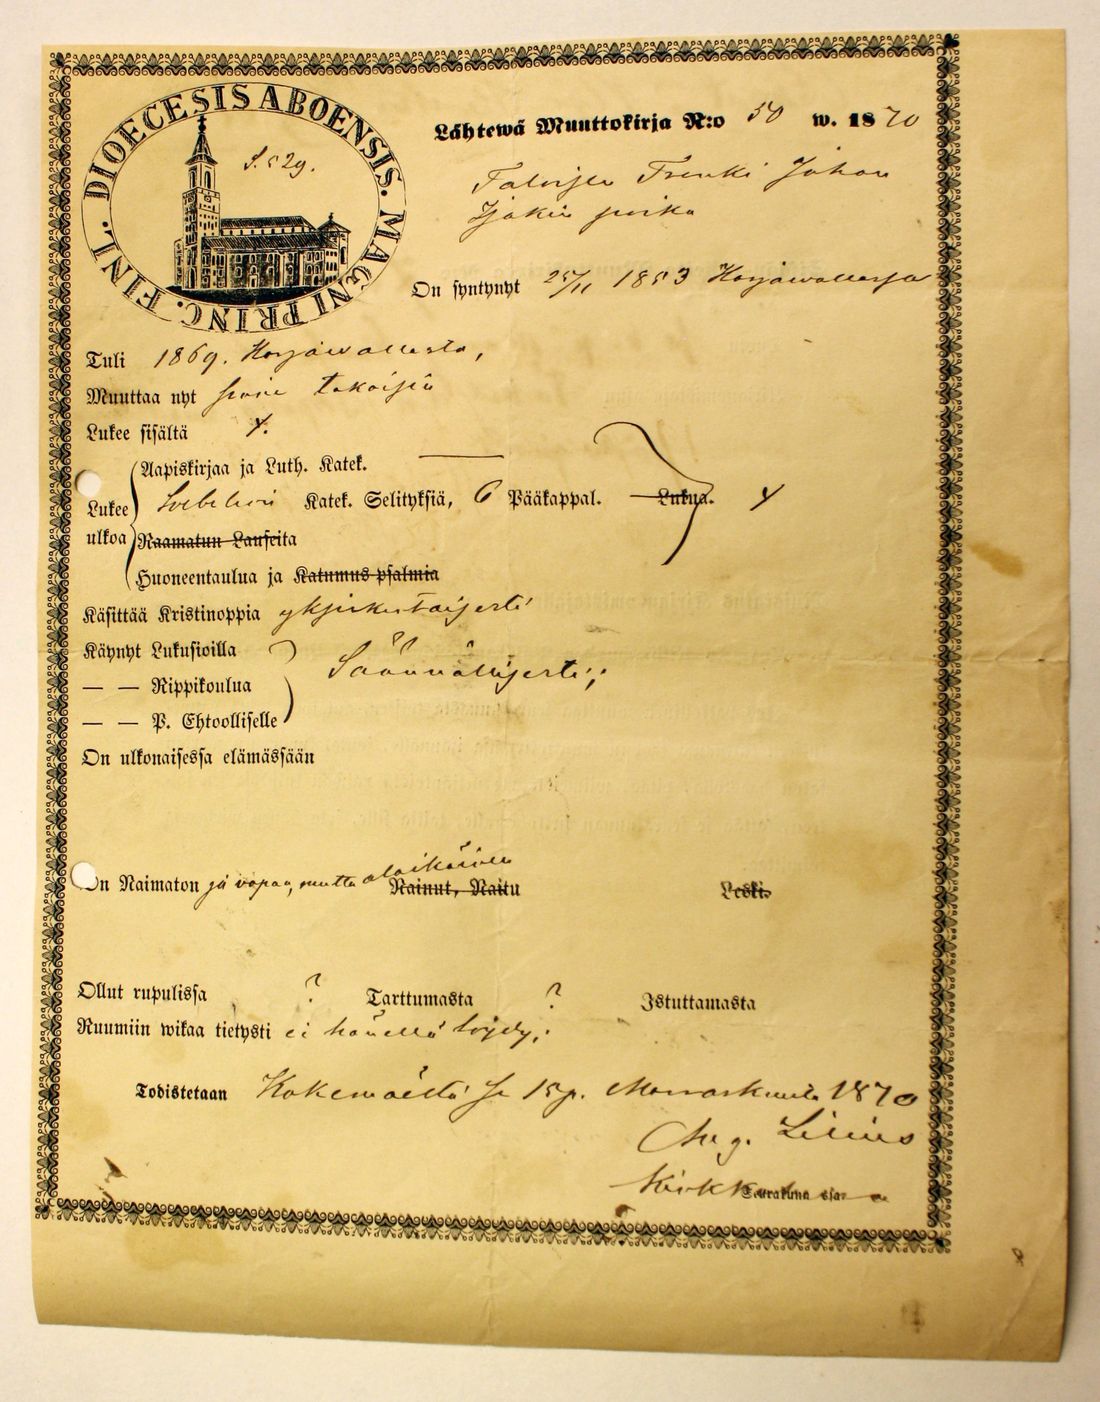 DIOECESIS ABOENSIS. MAGNI PRINC. FINL.
S. 529.
Lähtewä Muuttokirja N:o 50 w. 1870
Frenki Johan
poika
On syntynyt 25/11 1853 Harjawallassa
Tuli 1869. Harjawallasta,
Muuttaa nyt sinne takaisin
Lukee sisältä
Aapiskirjaa ja Luth. Katek. —
Lukee ulkoa
Katek. Selityksiä, 6 Pääkappal. Lukua.
Raamatun Lauseita
Huoneentaulua ja Katumus-psalmia
Käsittää Kristinoppia yksinkertaisesti
Käynyt Lukusioilla
— — Rippikoulua
Säännöllisesti;
— — P. Ehtoolliselle
On ulkonaisessa elämässään
On Naimaton ja vapaa, mutta alaikäinen
Nainut, Naitu Leski.
Ollut rupulissa ? Tarttumasta ? Istuttamasta
Ruumiin wikaa tietysti ei hänellä löydy;
Todistetaan Kokemäeltä se 15 p. Marraskuuta 1870
Aug. Lilius
Seurakunnassa